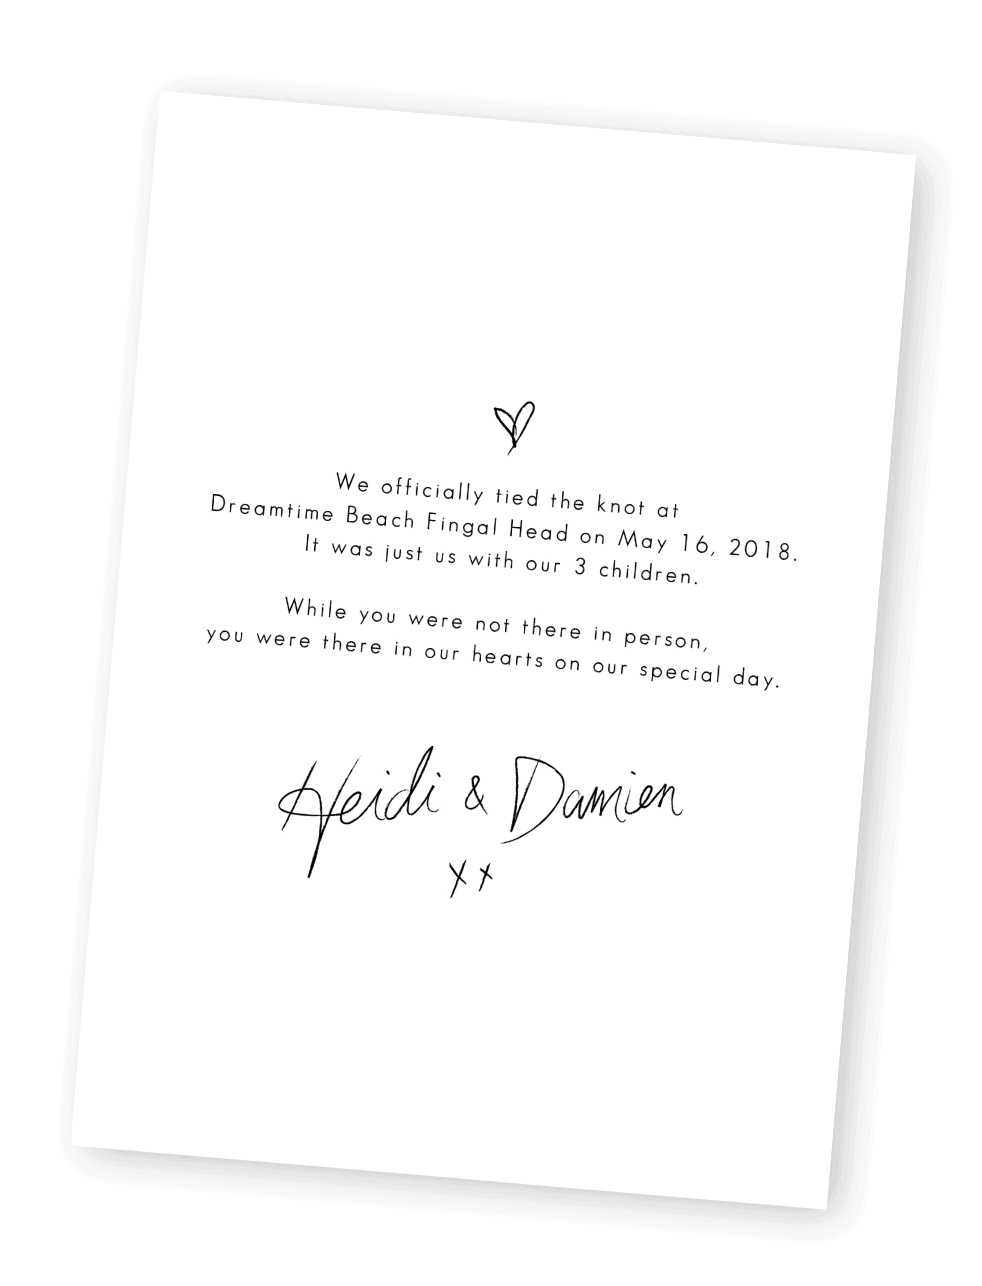 We officially tied the knot at
Dreamtime Beach Fingal Head on May 16, 2018.
It was just us with our 3 children.
While you were not there in person,
you were there in our hearts on our special day.
Heidi & Damien
xx